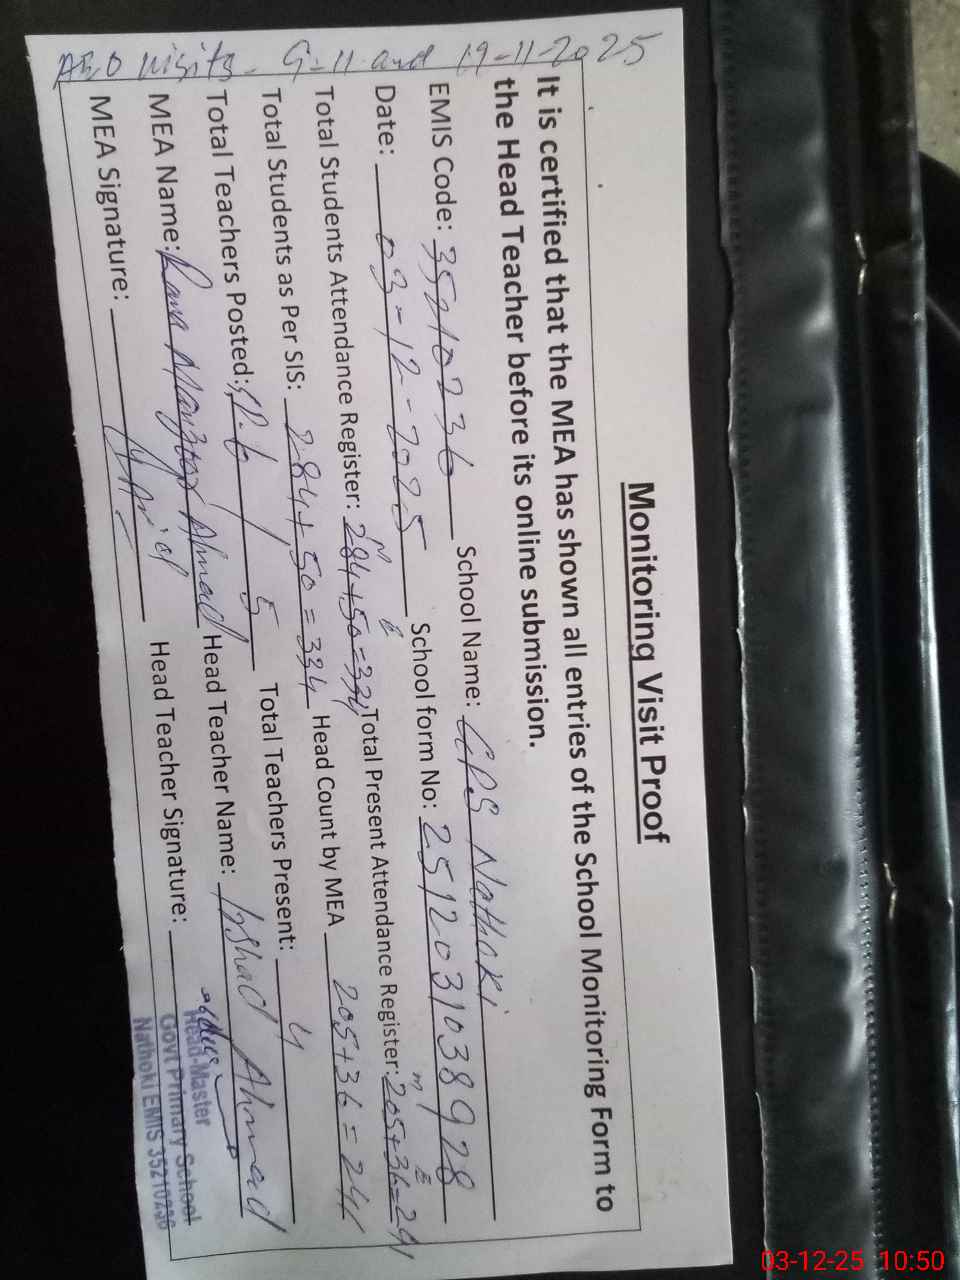 Monitoring Visit Proof
It is certified that the MEA has shown all entries of the School Monitoring Form to
the Head Teacher before its online submission.
EMIS Code: 35210236 School Name: GPS Nathoki
Date: 03-12-2025 School form No: 2512031038928
Total Students Attendance Register: 284+50=334 Total Present Attendance Register: 205+36=241
Total Students as Per SIS: 284+50=334 Head Count by MEA 205+36=241
Total Teachers Posted: 5 Total Teachers Present: 4
MEA Name: Rana Ahmad Head Teacher Name: Irshad Ahmad
MEA Signature: Head Teacher Signature:
Head-Master
Govt Primary School
Nathoki EMIS 35210236
AEO visits - G-11 and 19-11-2025
03-12-25 10:50